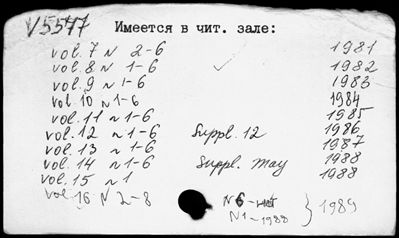 V5577
Имеется в чит. зале:
vol. 7 N 2-6 1981
vol. 8 N 1-6 1982
vol. 9 N 1-6 1983
vol. 10 N 1-6 1984
vol. 11 N 1-6 1985
vol. 12 N 1-6 Suppl. 12 1986
vol. 13 N 1-6 1987
vol. 14 N 1-6 Suppl. May 1988
vol. 15 N 1 1988
vol. 16 N 2-8 N 6 - нет } 1989
N 1 - 1988